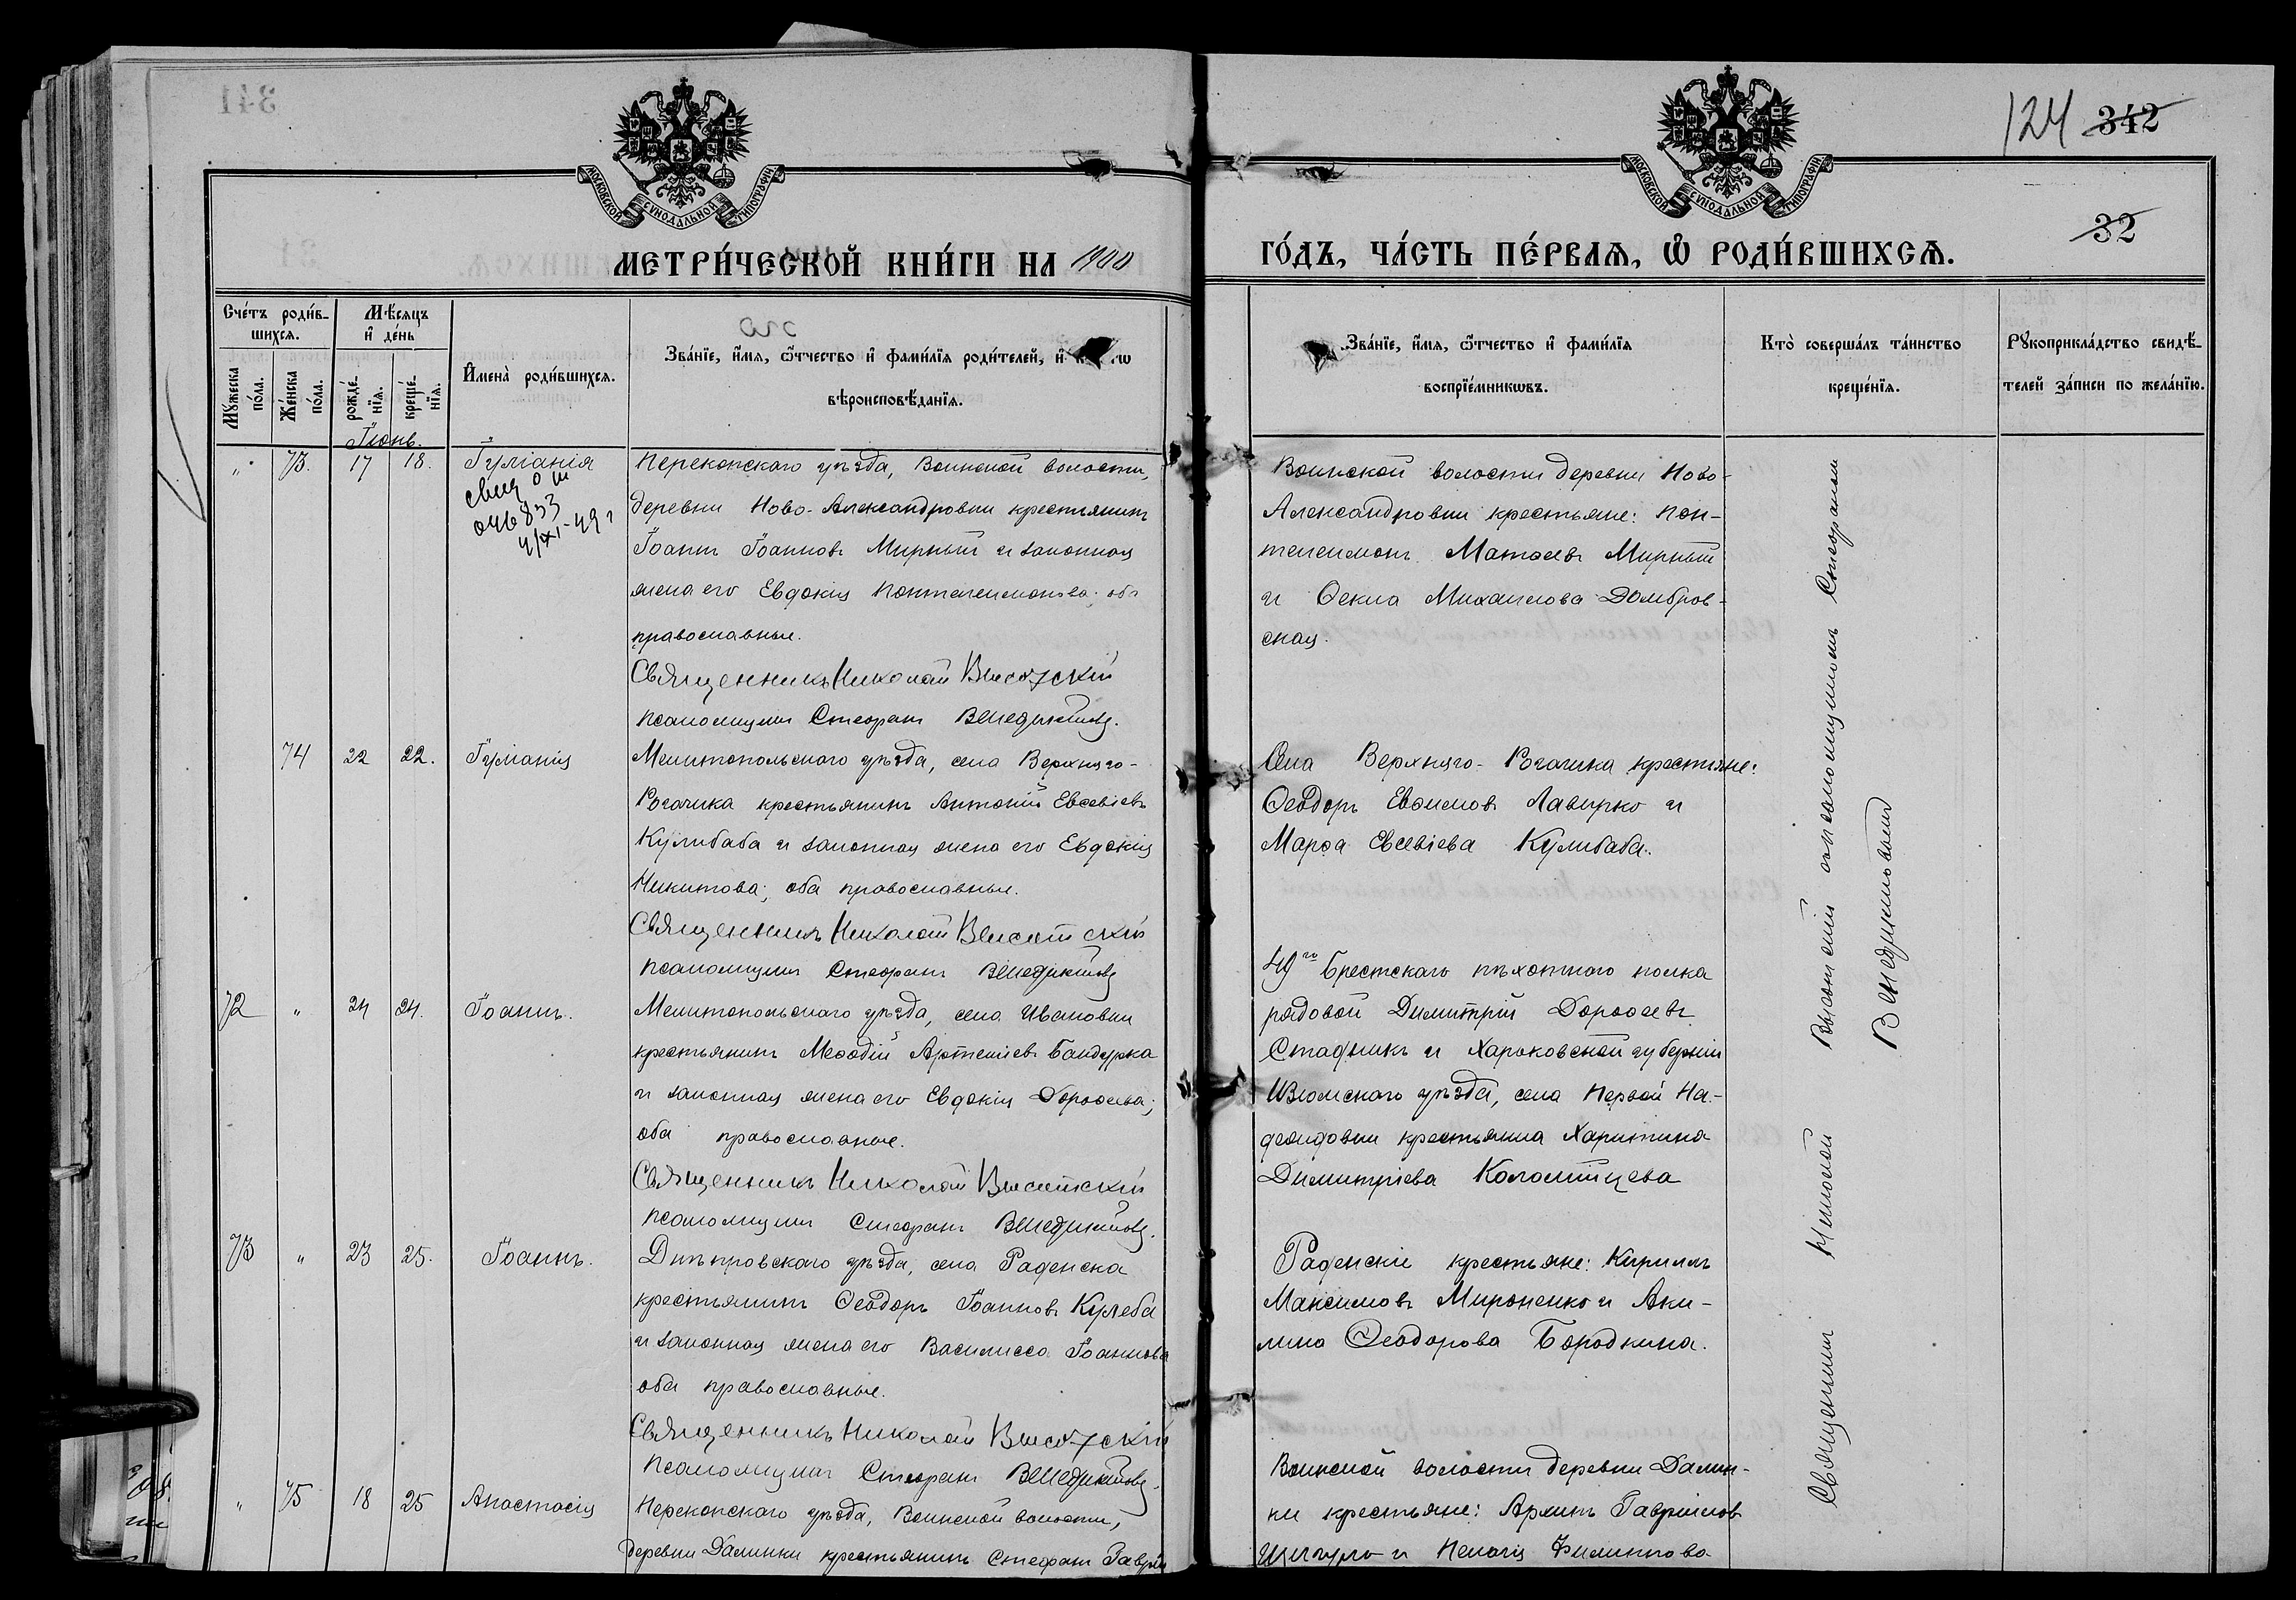 341
124 342
32
МОСКОВСКОЙ СѴНОДАЛЬНОЙ ТИПОГРАФІИ
МОСКОВСКОЙ СѴНОДАЛЬНОЙ ТИПОГРАФІИ
МЕТРИ́ЧЕСКОЙ КНИ́ГИ НА 1900
ГО́ДЪ, ЧА́СТЬ ПЕ́РВАѦ, Ѡ҆ РОДИ́ВШИХСѦ.
Сче́тъ роди́в-
шихсѧ.
Мꙋ́жеска по́ла.
Же́нска по́ла.
Мѣ́сѧцъ
и҆ де́нь
рожде́-нїѧ.
креще́-нїѧ.
И҆мена̀ роди́вшихсѧ.
Зва́нїе, и҆́мѧ, ѻ҆́тчество и҆ фами́лїѧ роди́телей, и҆
вѣроисповѣ́данїѧ.
Зва́нїе, и҆́мѧ, ѻ҆́тчество и҆ фами́лїѧ
воспрїе́мникѡвъ.
Кто̀ соверша́лъ та́инство
креще́нїѧ.
Рꙋкоприкла́дство свидѣ́-
телей за́писи по жела́нїю.
Іюнь.
" 73. 17 18. Іуліанія
046833
4/XI-49 г
Перекопскаго уѣзда, Воинской волости,
деревни Ново-Александровки крестьянинъ
Іоаннъ Іоанновъ Мирный и законная
жена его Евдокія Понтелеимонова; оба
православные.
Священникъ Николай Высотскій
Псаломщикъ Стефанъ Венедиктовъ.
Воинской волости деревни Ново-
Александровки крестьяне: Пон-
телеимонъ Матѳеевъ Мирный
и Ѳекла Михаилова Домбров-
ская.
74 22 22. Іуліанія
Мелитопольскаго уѣзда, села Верхняго-
Рогачика крестьянинъ Антоній Евсевіевъ
Кулибаба и законная жена его Евдокія
Никитова; оба православные.
Священникъ Николай Высотскій
Псаломщикъ Стефанъ Венедиктовъ
Села Верхняго-Рогачика крестьяне:
Ѳеодоръ Евѳимовъ Лавирко и
Марѳа Евсевіева Кулибаба.
72 " 24 24. Іоаннъ.
Мелитопольскаго уѣзда, села Ивановки
крестьянинъ Меѳодій Артеміевъ Бандурка
и законная жена его Евдокія Дороѳеева;
оба православные.
Священникъ Николай Высотскій
Псаломщикъ Стефанъ Венедиктовъ.
49го Брестскаго пѣхотнаго полка
рядовой Димитрій Дороѳеевъ
Стадникъ и Харьковской губерніи
Изюмскаго уѣзда, села Первой На-
деждовки крестьянка Харитина
Димитріева Коломійцева
73 " 23 25. Іоаннъ.
Днѣпровскаго уѣзда, села Раденска
крестьянинъ Ѳеодоръ Іоанновъ Кулеба
и законная жена его Василисса Іоаннова
оба православные.
Священникъ Николай Высотскій
Псаломщикъ Стефанъ Венедиктовъ.
Раденскіе крестьяне: Кириллъ
Максимовъ Мироненко и Аки-
лина Ѳеодорова Бородкина.
" 75 18 25 Анастасія
Перекопскаго уѣзда, Воинской волости,
деревни Далинки крестьянинъ Стефанъ Гаврии
Воинской волости деревни Далин-
ки крестьяне: Архипъ Гавриіловъ
и Пелагія Филиппова
Священникъ Николай Высотскій съ псаломщикомъ Стефаномъ
Венедиктовымъ